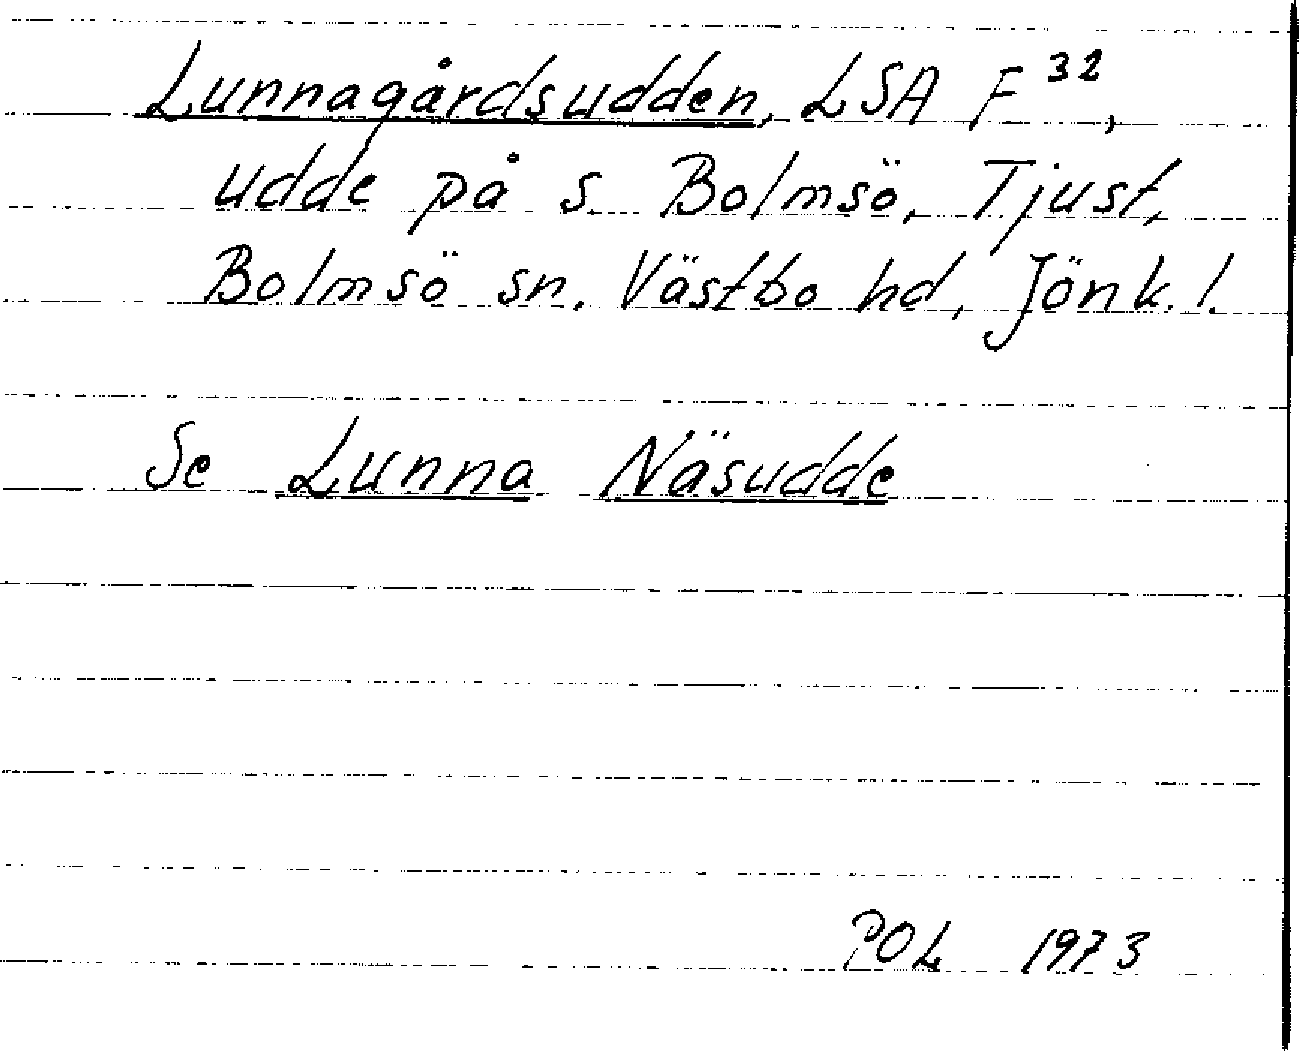 Lunnagårdsudden, LSA F³²,
udde på s Bolmsö, Tjust,
Bolmsö sn, Västbo hd, Jönk. l.
Se Lunna Näsudde
POL 1973